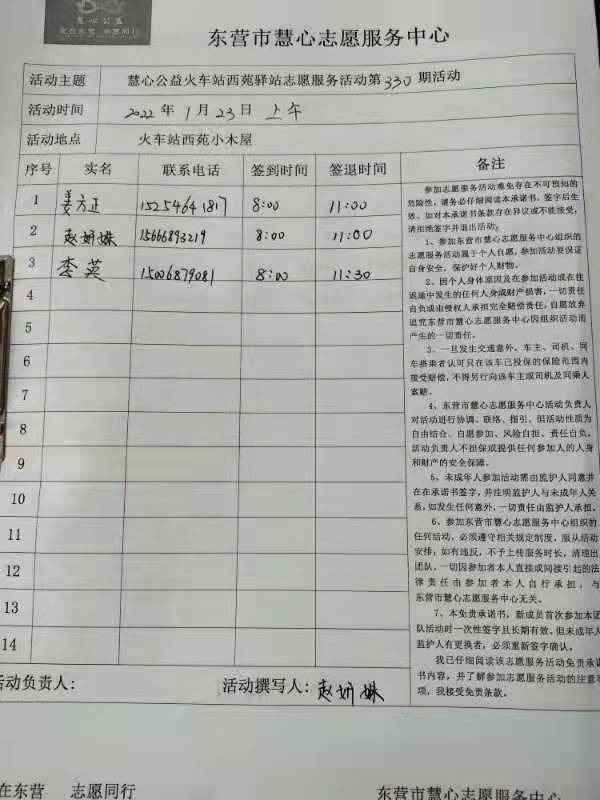 慧心公益
爱在东营 志愿同行
东营市慧心志愿服务中心
活动主题 慧心公益火车站西苑驿站志愿服务活动第330期活动
活动时间 2022年1月23日上午
活动地点 火车站西苑小木屋
序号 实名 联系电话 签到时间 签退时间 备注
1 姜方正 15254641817 8:00 11:00
2 赵妍姝 15666893219 8:00 11:00
3 李英 15006879081 8:00 11:30
4
5
6
7
8
9
10
11
12
13
14
参加志愿服务活动难免存在不可预知的
危险性，请务必仔细阅读本承诺书，签字后生
效。如对本承诺书条款存在异议或不能接受，
请拒绝签字并退出活动；
1、参加东营市慧心志愿服务中心组织的
志愿服务活动属于个人自愿，参加活动要保证
自身安全，保护好个人财物。
2、因个人身体原因及在参加活动或在往
返途中发生的任何人身或财产损害，一切责任
自负或由侵权人承担完全赔偿责任，自愿放弃
追究东营市慧心志愿服务中心因组织活动而
产生的一切责任。
3、一旦发生交通意外，车主、司机、同
车搭乘者认可只在该车已投保的保险范围内
接受赔偿，不得另行向该车主或司机及同乘人
索赔。
4、东营市慧心志愿服务中心活动负责人
对活动进行协调、联络、指引，但活动性质为
自由结合、自愿参加、风险自担、责任自负。
活动负责人不担保或提供任何参加人的人身
和财产的安全保障。
5、未成年人参加活动需由监护人同意并
在在承诺书签字，并注明监护人与未成年人关
系，如发生任何意外，一切责任由监护人承担。
6、参加东营市慧心志愿服务中心组织的
任何活动，必须遵守相关规定制度，服从活动
安排；如有违反，不予上传服务时长，清理出
团队。一切因参加者本人直接或间接引起的法
律责任由参加者本人自行承担，与
东营市慧心志愿服务中心无关。
7、本免责承诺书，新成员首次参加本团
队活动时一次性签字且长期有效，但未成年人
监护人有更换者，必须重新签字确认。
我已仔细阅读该志愿服务活动免责承诺
书内容，并了解参加志愿服务活动的注意事
项，我接受免责条款。
活动负责人： 活动撰写人：赵妍姝
在东营 志愿同行 东营市慧心志愿服务中心